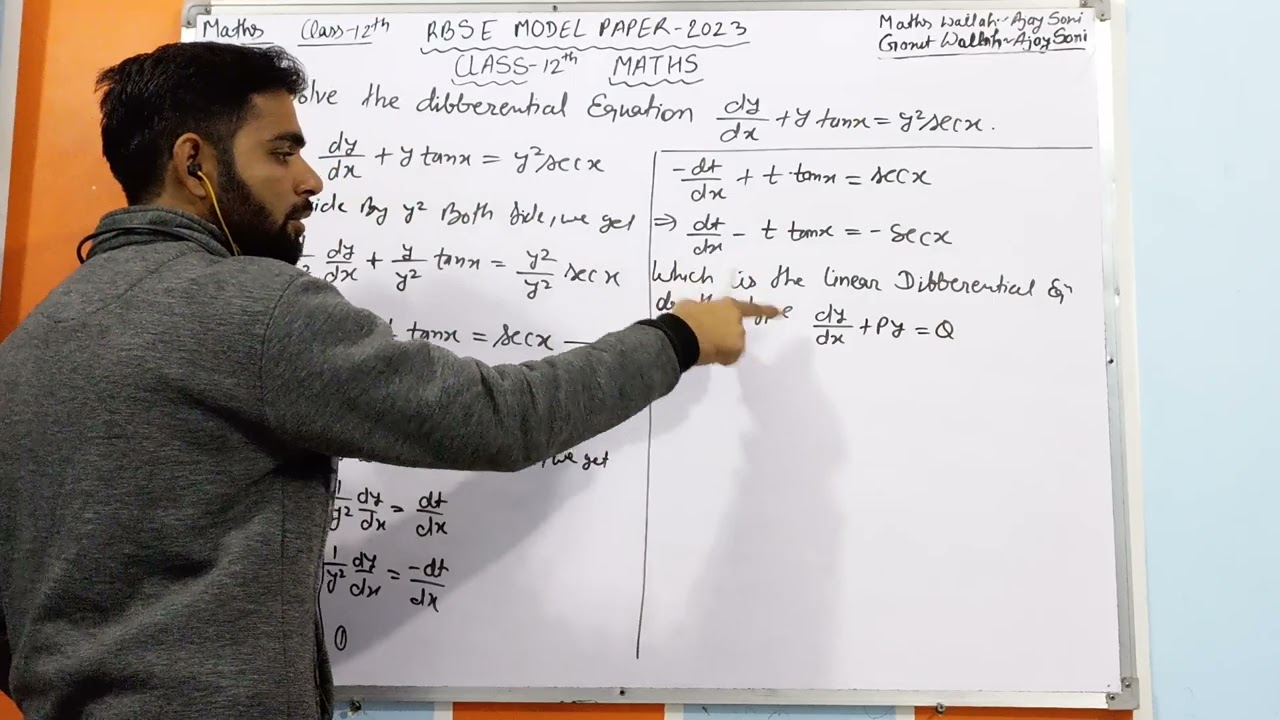 Maths Class-12th RBSE MODEL PAPER-2023
Maths Wallah-Ajay Soni
Gravit Wallah-Ajay Soni
CLASS-12th MATHS
olve the differential Equation dy/dx + y tanx = y² secx.
dy/dx + y tanx = y² secx
ide By y² Both Side, we get
dy/dx + y/y² tanx = y²/y² secx
tanx = secx
, we get
1/y² dy/dx = dt/dx
1/y² dy/dx = -dt/dx
①
-dt/dx + t·tanx = secx
⇒ dt/dx - t tanx = - secx
Which is the linear Differential Eqn
dy/dx + Py = Q